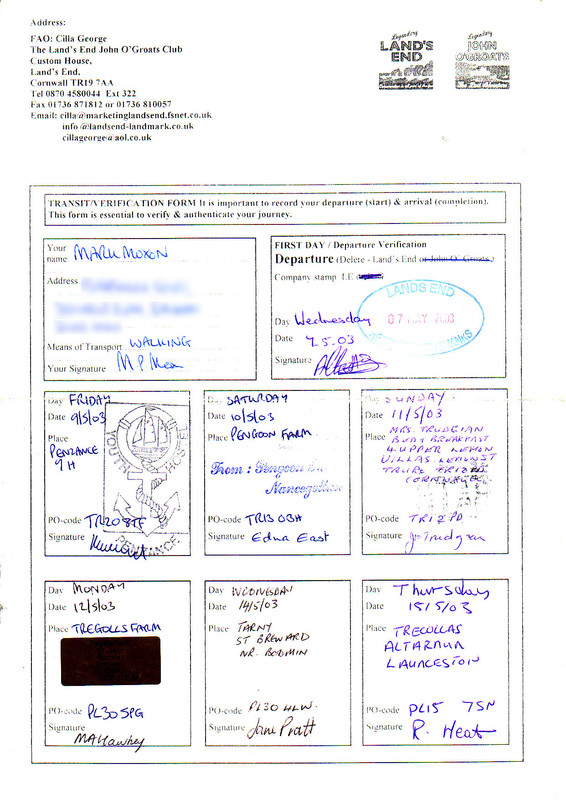 Address:
FAO: Cilla George
The Land's End John O'Groats Club
Custom House,
Land's End,
Cornwall TR19 7AA
Tel 0870 4580044 Ext 322
Fax 01736 871812 or 01736 810057
Email: cilla@marketinglandsend.fsnet.co.uk
info@landsend-landmark.co.uk
cillageorge@aol.co.uk
Legendary
LAND'S
END
Legendary
JOHN
O'GROATS
TRANSIT/VERIFICATION FORM It is important to record your departure (start) & arrival (completion).
This form is essential to verify & authenticate your journey.
Your name MARK MOXON
Address
Means of Transport WALKING
Your Signature M P Moxon
FIRST DAY / Departure Verification
Departure (Delete - Land's End or John O' Groats)
Company stamp I.E
LANDS END
07 MAY 2003
Day Wednesday
Date 7.5.03
Signature
Day FRIDAY
Date 9/5/03
Place PENZANCE
YH
YOUTH HOSTEL
PENZANCE
PO-code TR20 8TF
Signature
Day SATURDAY
Date 10/5/03
Place PENGOON FARM
From: Pengoon
Nancegollan
PO-code TR13 0BH
Signature Edna East
Day SUNDAY
Date 11/5/03
Place MRS. TRUDGIAN
BED & BREAKFAST
4 UPPER LEMON
VILLAS LEMON ST
TRURO
CORNWALL
PO-code TR1 2PD
Signature J Trudgian
Day MONDAY
Date 12/5/03
Place TREGOLLS FARM
PO-code PL30 5PG
Signature MA Hawkey
Day WEDNESDAY
Date 14/5/03
Place TARNY
ST BREWARD
NR. BODMIN
PO-code PL30 4LW
Signature Jane Pratt
Day Thursday
Date 15/5/03
Place TRECOLLAS
ALTARNUN
LAUNCESTON
PO-code PL15 7SN
Signature R. Heat